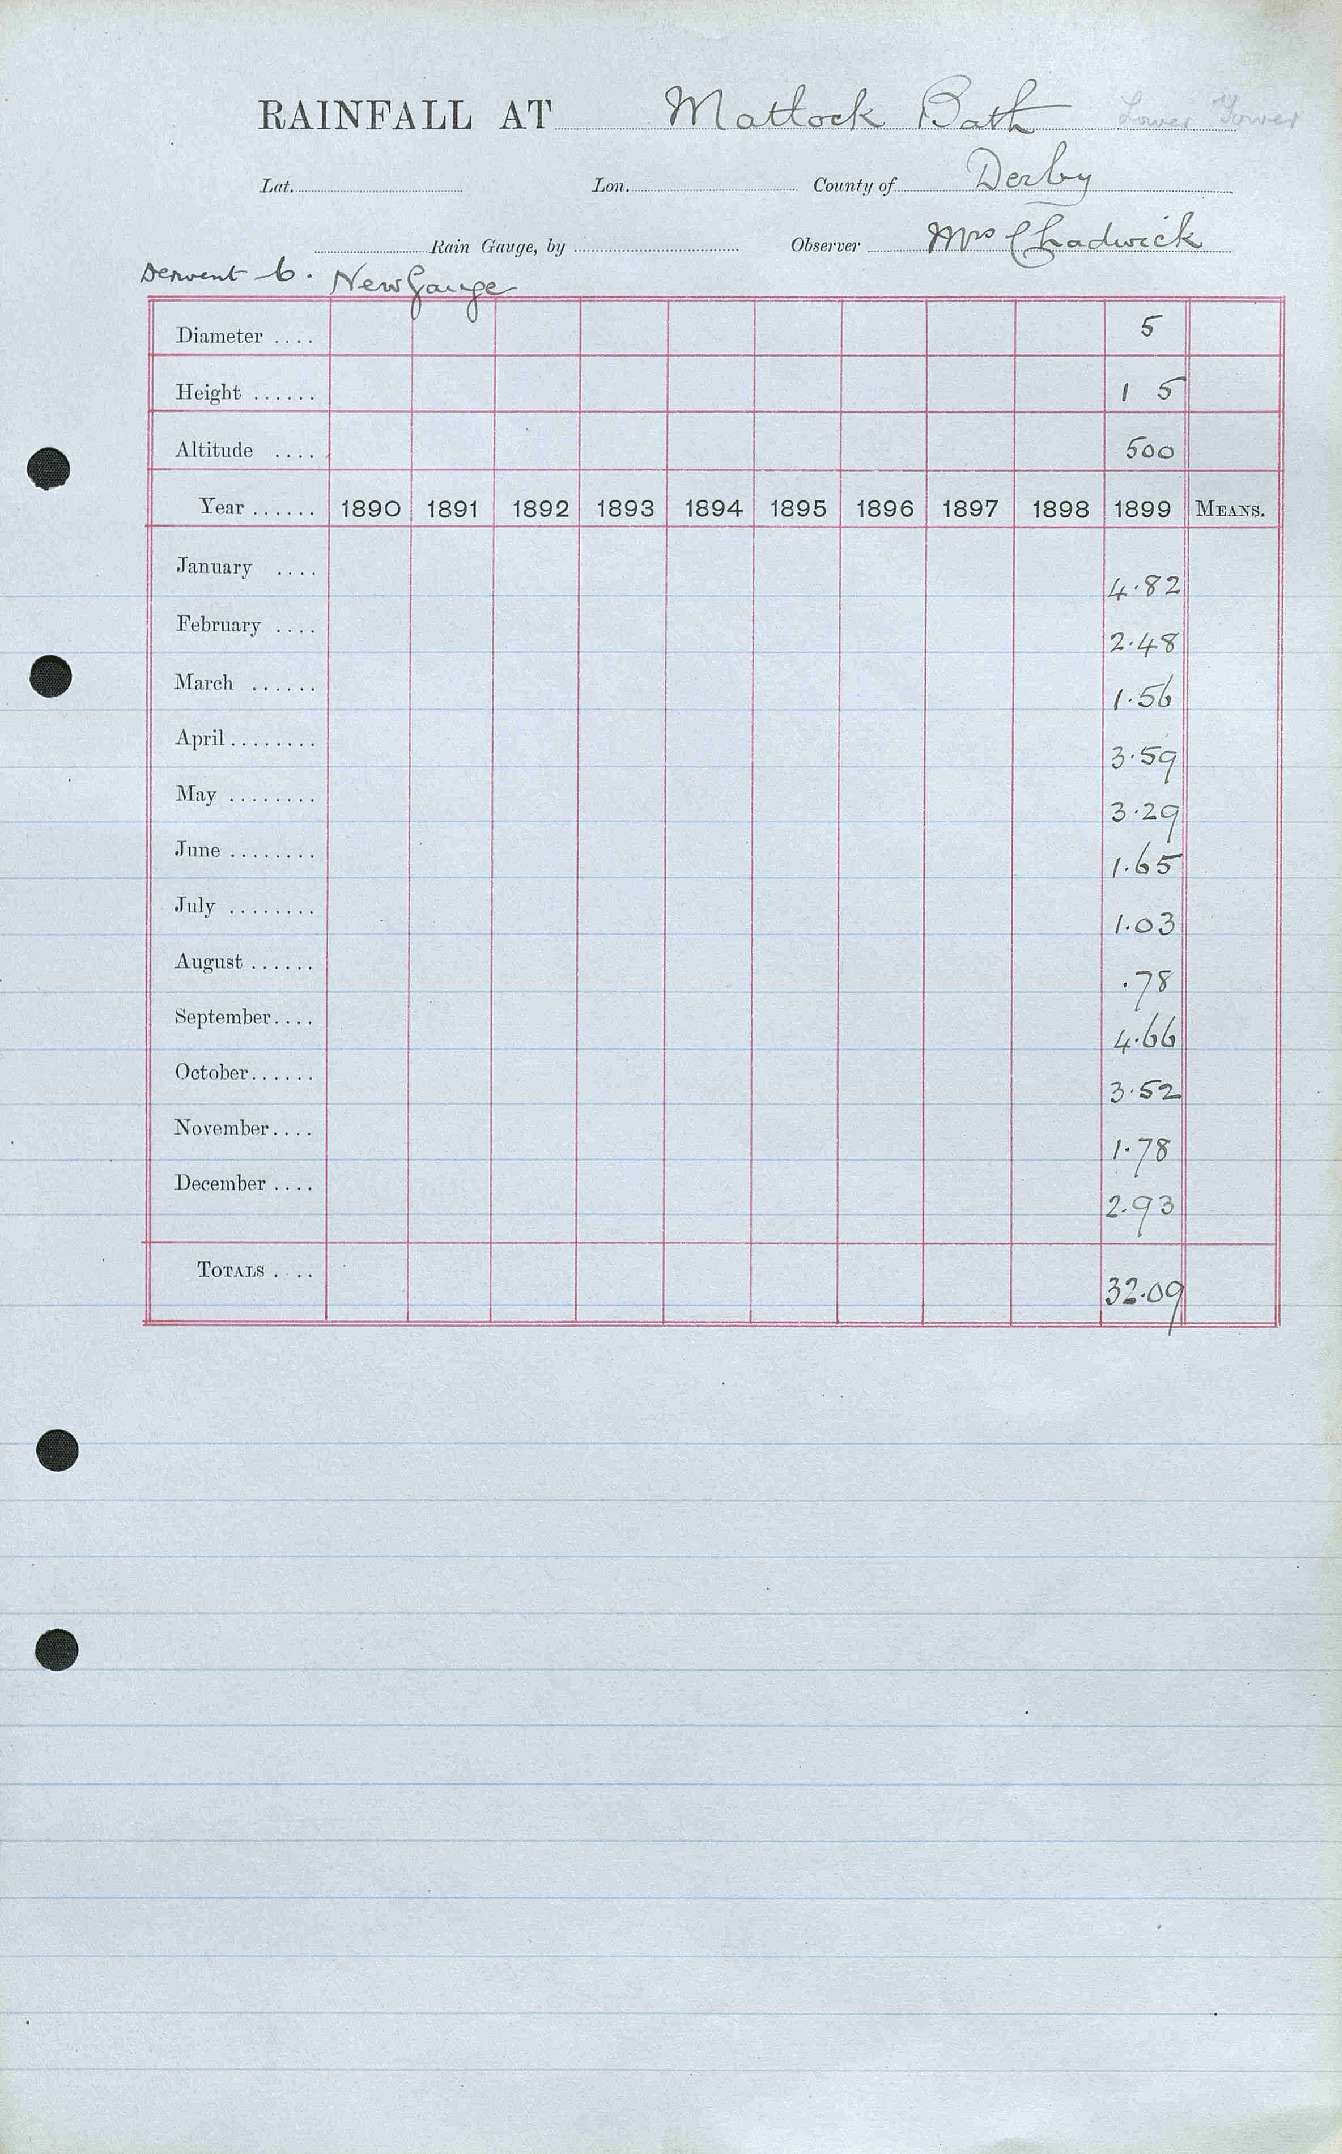 RAINFALL AT Matlock Bath Lower Tower
Lat. Lon. County of Derby
Rain Gauge, by Observer Mrs Chadwick
Derwent 6. New Gauge
Diameter .... 5
Height ...... 1 5
Altitude .... 500
Year ...... 1890 1891 1892 1893 1894 1895 1896 1897 1898 1899 MEANS.
January .... 4.82
February .... 2.48
March ...... 1.56
April ........ 3.59
May ........ 3.29
June ........ 1.65
July ........ 1.03
August ...... .78
September.... 4.66
October...... 3.52
November.... 1.78
December .... 2.93
TOTALS .... 32.09